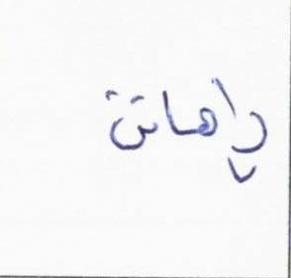 ڕاهاتن